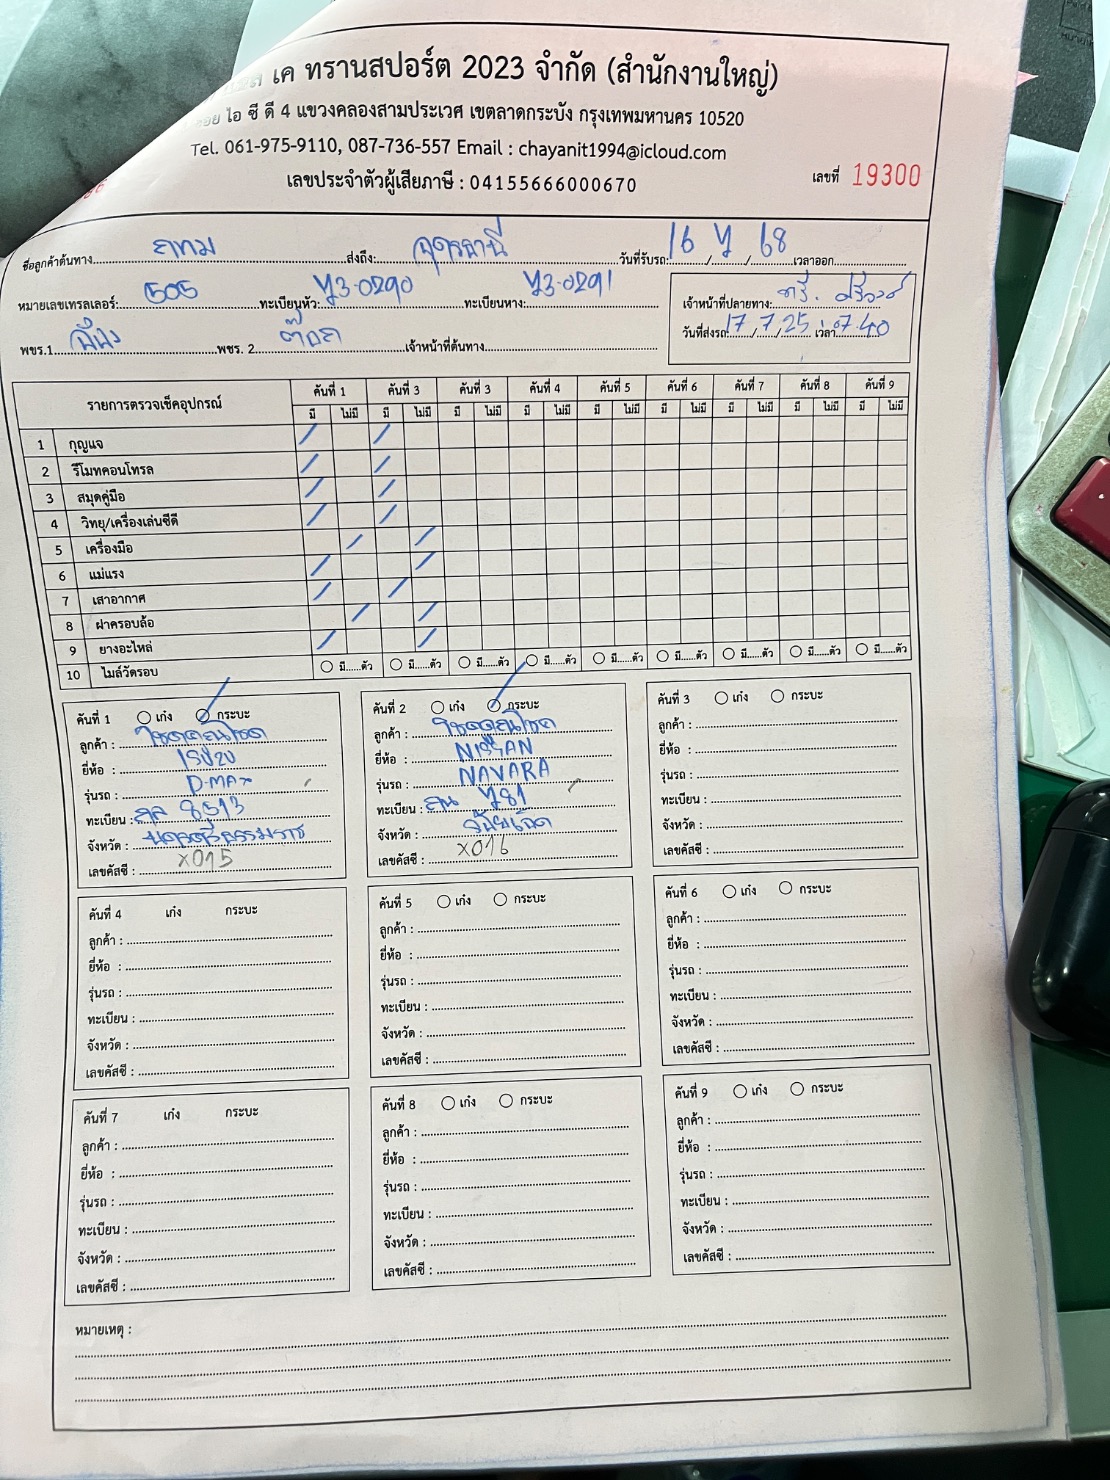 เค ทรานสปอร์ต 2023 จำกัด (สำนักงานใหญ่)
ไอ ซี ดี 4 แขวงคลองสามประเวศ เขตลาดกระบัง กรุงเทพมหานคร 10520
Tel. 061-975-9110, 087-736-557 Email : chayanit1994@icloud.com
เลขประจำตัวผู้เสียภาษี : 04155666000670
เลขที่ 19300
ชื่อลูกค้าต้นทาง ส่งถึง: อุดรธานี วันที่รับรถ: 16 / 7 / 68 เวลาออก
หมายเลขเทรลเลอร์: 505 ทะเบียนหัว: 73-0290 ทะเบียนหาง: 73-0291
เจ้าหน้าที่ปลายทาง:
วันที่ส่งรถ: 17 / 7 / 25 เวลา 07.40
พขร.1 พขร. 2 เจ้าหน้าที่ต้นทาง
รายการตรวจเช็คอุปกรณ์ คันที่ 1 คันที่ 3 คันที่ 3 คันที่ 4 คันที่ 5 คันที่ 6 คันที่ 7 คันที่ 8 คันที่ 9
มี ไม่มี มี ไม่มี มี ไม่มี มี ไม่มี มี ไม่มี มี ไม่มี มี ไม่มี มี ไม่มี มี ไม่มี
1 กุญแจ / /
2 รีโมทคอนโทรล / /
3 สมุดคู่มือ / /
4 วิทยุ/เครื่องเล่นซีดี / /
5 เครื่องมือ / /
6 แม่แรง / /
7 เสาอากาศ / /
8 ฝาครอบล้อ / /
9 ยางอะไหล่ / /
10 ไมล์วัดรอบ มี......ตัว มี......ตัว มี......ตัว มี......ตัว มี......ตัว มี......ตัว มี......ตัว มี......ตัว มี......ตัว
คันที่ 1 เก๋ง กระบะ
ลูกค้า :
ยี่ห้อ : ISUZU
รุ่นรถ : D-MAX
ทะเบียน : 8513
จังหวัด : นครศรีธรรมราช
เลขคัสซี : X015
คันที่ 2 เก๋ง กระบะ
ลูกค้า :
ยี่ห้อ : NISSAN
รุ่นรถ : NAVARA
ทะเบียน : 781
จังหวัด : ร้อยเอ็ด
เลขคัสซี : X016
คันที่ 3 เก๋ง กระบะ
ลูกค้า :
ยี่ห้อ :
รุ่นรถ :
ทะเบียน :
จังหวัด :
เลขคัสซี :
คันที่ 4 เก๋ง กระบะ
ลูกค้า :
ยี่ห้อ :
รุ่นรถ :
ทะเบียน :
จังหวัด :
เลขคัสซี :
คันที่ 5 เก๋ง กระบะ
ลูกค้า :
ยี่ห้อ :
รุ่นรถ :
ทะเบียน :
จังหวัด :
เลขคัสซี :
คันที่ 6 เก๋ง กระบะ
ลูกค้า :
ยี่ห้อ :
รุ่นรถ :
ทะเบียน :
จังหวัด :
เลขคัสซี :
คันที่ 7 เก๋ง กระบะ
ลูกค้า :
ยี่ห้อ :
รุ่นรถ :
ทะเบียน :
จังหวัด :
เลขคัสซี :
คันที่ 8 เก๋ง กระบะ
ลูกค้า :
ยี่ห้อ :
รุ่นรถ :
ทะเบียน :
จังหวัด :
เลขคัสซี :
คันที่ 9 เก๋ง กระบะ
ลูกค้า :
ยี่ห้อ :
รุ่นรถ :
ทะเบียน :
จังหวัด :
เลขคัสซี :
หมายเหตุ :